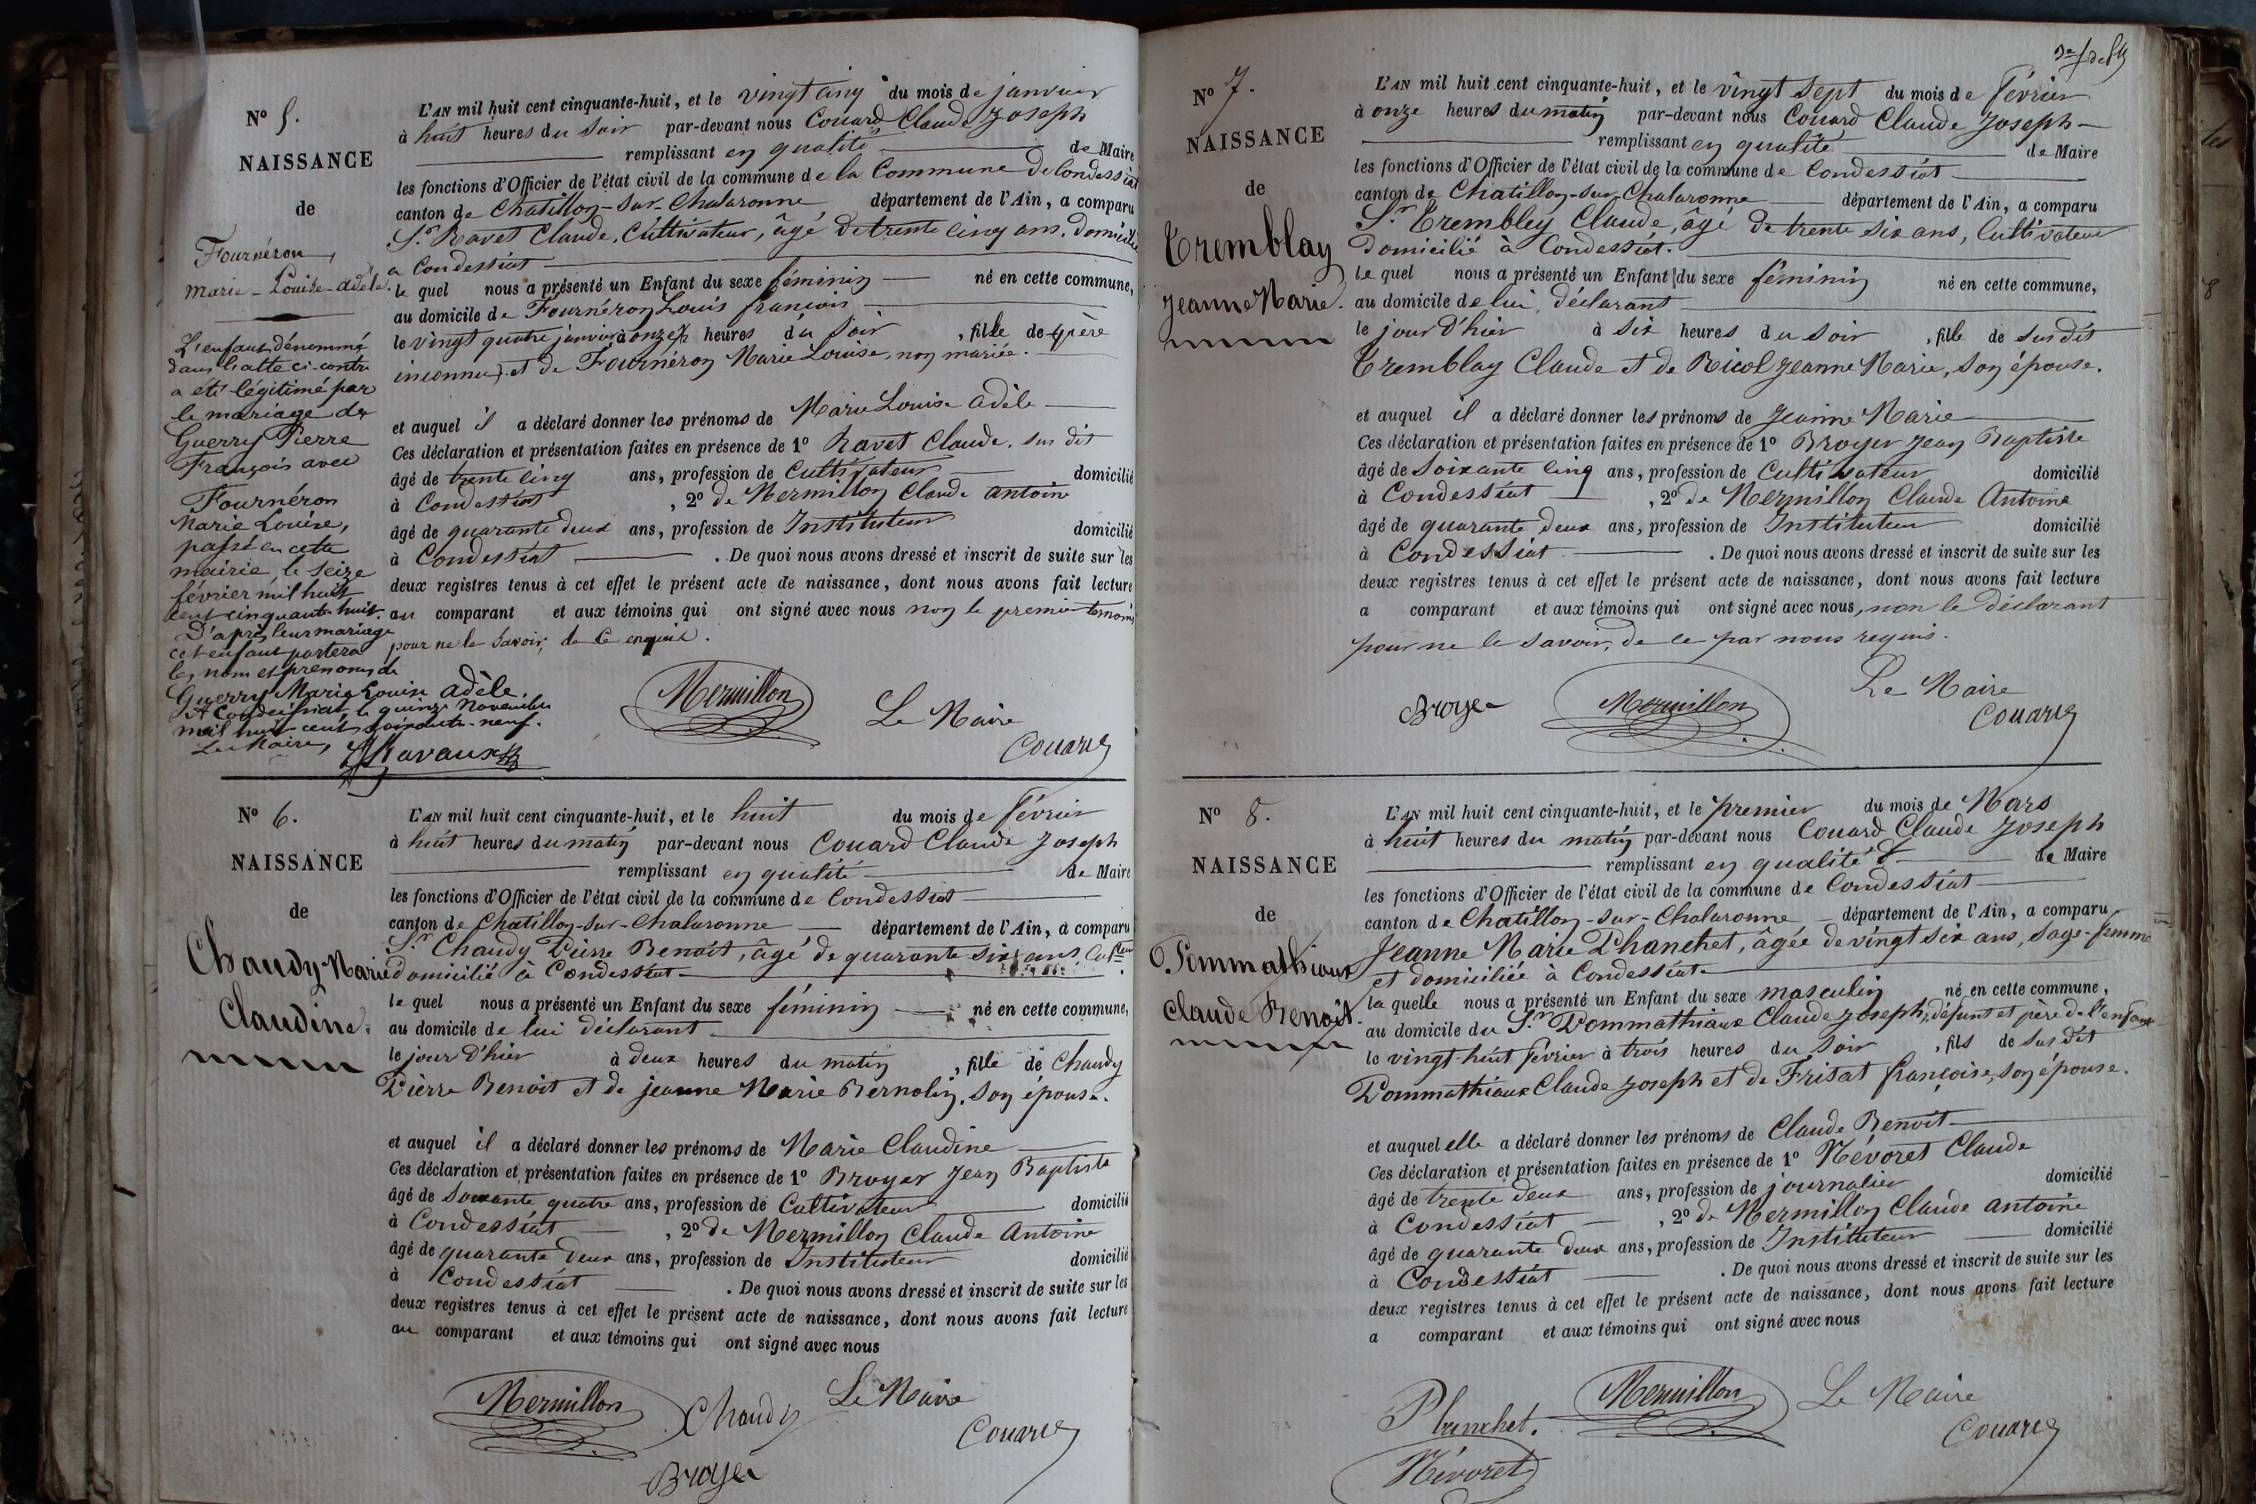 N° 5.
NAISSANCE
de
Fournéron,
Marie-Louise-Adèle.
L'enfant dénommé
dans l'acte ci-contre
a été légitimé par
le mariage de
Guerry Pierre
François avec
Fournéron
Marie Louise,
passé en cette
mairie, le seize
février mil huit
cent cinquante huit.
D'après leur mariage
cet enfant portera
les nom et prenoms de
Guerry Marie Louise Adèle.
A Condeissiat, le quinze Novembre
mil huit cent soixante-neuf.
Le Maire,
L'AN mil huit cent cinquante-huit, et le vingt cinq du mois de janvier
à huit heures du soir par-devant nous Couard Claude Joseph
remplissant en qualité de Maire
les fonctions d'Officier de l'état civil de la commune de la Commune de Condessiat
canton de Chatillon-sur-Chalaronne département de l'Ain, a comparu
Sr. Ravet Claude, Cultivateur, âgé de trente cinq ans, domicilié
a Condessiat
le quel nous a présenté un Enfant du sexe féminin né en cette commune,
au domicile de Fournéron Louis françois
le vingt quatre janvier à onze heures du soir , fille de père
inconnu, et de Fournéron Marie Louise, non mariée.
et auquel il a déclaré donner les prénoms de Marie Louise Adèle
Ces déclaration et présentation faites en présence de 1° Ravet Claude. sus dit
âgé de trente cinq ans, profession de Cultivateur domicilié
à Condessiat , 2° de Mermillon Claude Antoine
âgé de quarante deux ans, profession de Instituteur domicilié
à Condessiat . De quoi nous avons dressé et inscrit de suite sur les
deux registres tenus à cet effet le présent acte de naissance, dont nous avons fait lecture
au comparant et aux témoins qui ont signé avec nous non le premier temoin
pour ne le savoir, de ce enquis.
Mermillon
Le Maire
Couard
N° 6.
NAISSANCE
de
Chaudy Marie
Claudine.
L'AN mil huit cent cinquante-huit, et le huit du mois de février
à huit heures du matin par-devant nous Couard Claude Joseph
remplissant en qualité de Maire
les fonctions d'Officier de l'état civil de la commune de Condessiat
canton de Chatillon-sur-Chalaronne département de l'Ain, a comparu
Sr. Chaudy Pierre Benoit, âgé de quarante six ans, Culteur
domicilié à Condessiat
le quel nous a présenté un Enfant du sexe féminin né en cette commune,
au domicile de lui déclarant
le jour d'hier à deux heures du matin , fille de Chaudy
Pierre Benoit et de jeanne Marie Bernolin, son épouse.
et auquel il a déclaré donner les prénoms de Marie Claudine
Ces déclaration et présentation faites en présence de 1° Broyer Jean Baptiste
âgé de soixante quatre ans, profession de Cultivateur domicilié
à Condessiat , 2° de Mermillon Claude Antoine
âgé de quarante deux ans, profession de Instituteur domicilié
à Condessiat . De quoi nous avons dressé et inscrit de suite sur les
deux registres tenus à cet effet le présent acte de naissance, dont nous avons fait lecture
au comparant et aux témoins qui ont signé avec nous
Mermillon
Chaudy
Le Maire
Couard
Broyer
N° 7.
NAISSANCE
de
Tremblay
Jeanne Marie.
L'AN mil huit cent cinquante-huit, et le vingt sept du mois de février
à onze heures du matin par-devant nous Couard Claude Joseph
remplissant en qualité de Maire
les fonctions d'Officier de l'état civil de la commune de Condessiat
canton de Chatillon-sur-Chalaronne département de l'Ain, a comparu
Sr. Trembley Claude, âgé de trente six ans, Cultivateur
domicilié à Condessiat.
le quel nous a présenté un Enfant du sexe féminin né en cette commune,
au domicile de lui déclarant
le jour d'hier à six heures du soir , fille de sus dit
Tremblay Claude et de Ricol Jeanne Marie, son épouse.
et auquel il a déclaré donner les prénoms de Jeanne Marie
Ces déclaration et présentation faites en présence de 1° Broyer Jean Baptiste
âgé de soixante cinq ans, profession de Cultivateur domicilié
à Condessiat , 2° de Mermillon Claude Antoine
âgé de quarante deux ans, profession de Instituteur domicilié
à Condessiat . De quoi nous avons dressé et inscrit de suite sur les
deux registres tenus à cet effet le présent acte de naissance, dont nous avons fait lecture
a comparant et aux témoins qui ont signé avec nous, non le déclarant
pour ne le savoir, de ce par nous requis.
Broyer
Mermillon
Le Maire
Couard
N° 8.
NAISSANCE
de
Pommathiaux
Claude Benoit.
L'AN mil huit cent cinquante-huit, et le premier du mois de Mars
à huit heures du matin par-devant nous Couard Claude Joseph
remplissant en qualité de Maire
les fonctions d'Officier de l'état civil de la commune de Condessiat
canton de Chatillon-sur-Chalaronne département de l'Ain, a comparu
Jeanne Marie Planchet, âgée de vingt six ans, sage-femme
et domiciliée à Condessiat
la quelle nous a présenté un Enfant du sexe masculin né en cette commune,
au domicile du Sr. Pommathiaux Claude Joseph, défunt et père de l'enfant
le vingt-huit février à trois heures du soir , fils de sus dit
Pommathiaux Claude Joseph et de Frisat françoise, son épouse.
et auquel elle a déclaré donner les prénoms de Claude Benoit
Ces déclaration et présentation faites en présence de 1° Névoret Claude
âgé de trente deux ans, profession de journalier domicilié
à Condessiat , 2° de Mermillon Claude Antoine
âgé de quarante deux ans, profession de Instituteur domicilié
à Condessiat . De quoi nous avons dressé et inscrit de suite sur les
deux registres tenus à cet effet le présent acte de naissance, dont nous avons fait lecture
a comparant et aux témoins qui ont signé avec nous
Planchet.
Mermillon
Le Maire
Couard
Névoret